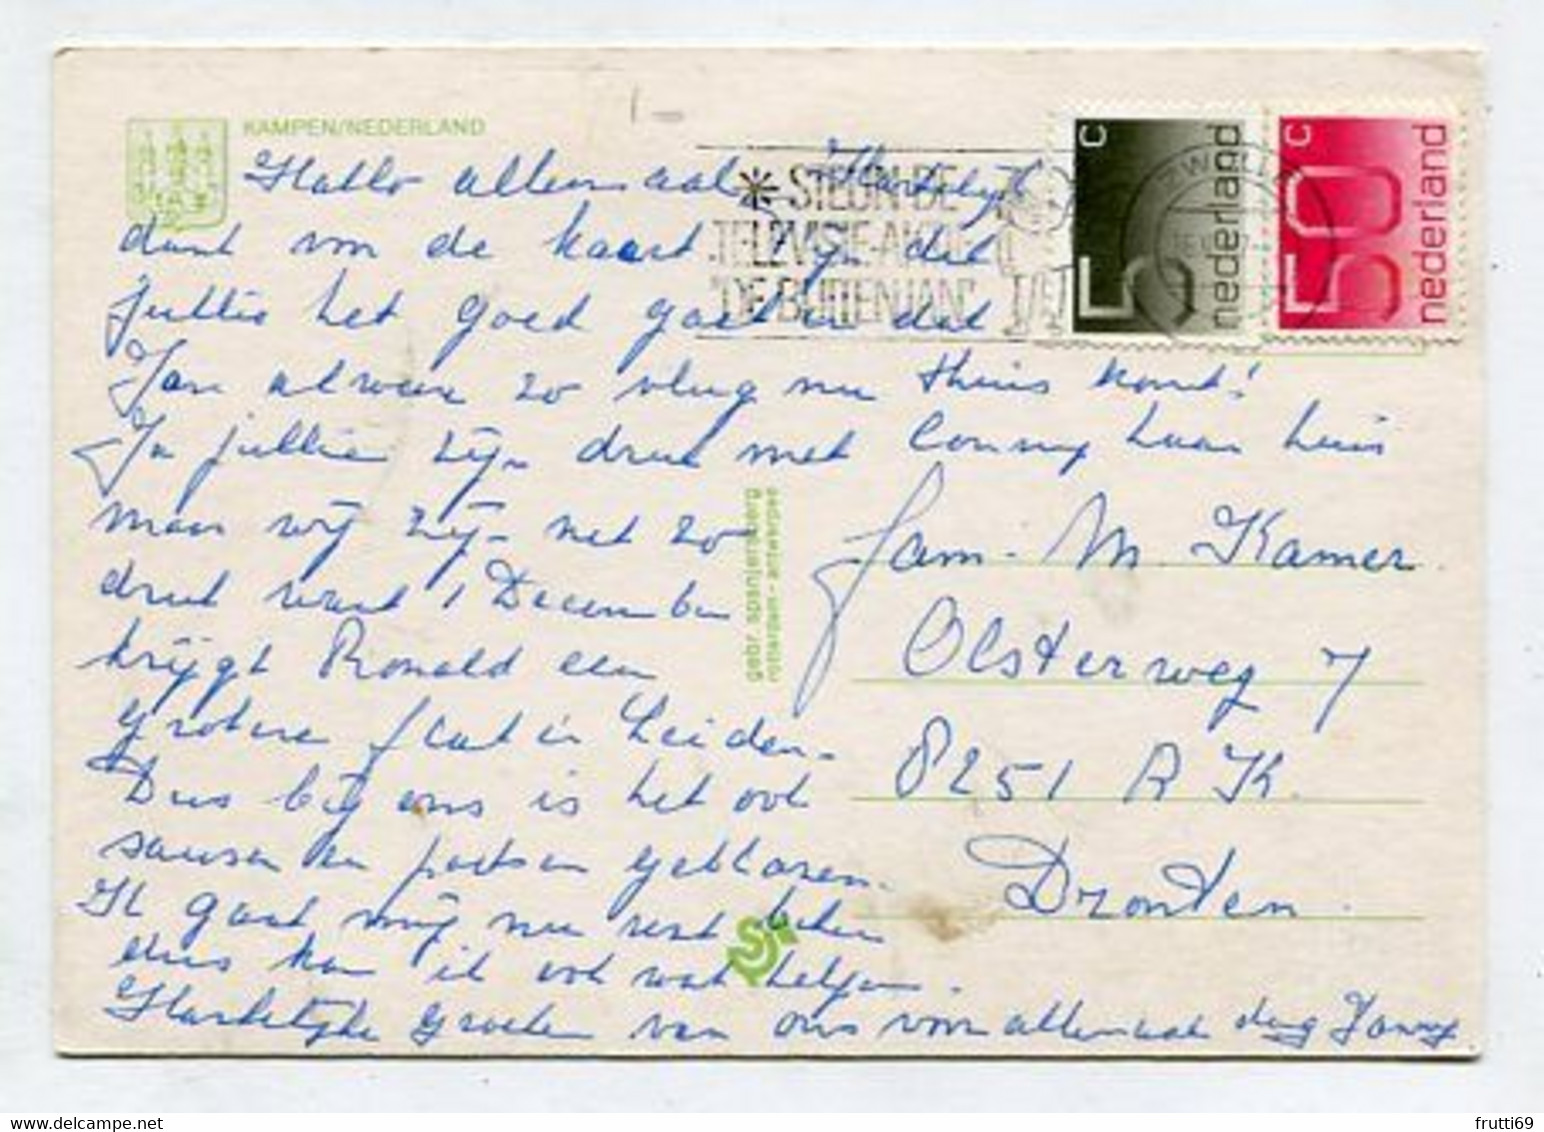 KAMPEN/NEDERLAND
Hallo allemaal, Hartelijk
dank vm de kaart, Fijn dat
jullie het goed gaat en dat
Jan alweer zo vlug nu thuis komt!
Ja jullie zijn druk met Conny haar huis
maar wij zijn net zo
druk want 1 December
krijgt Ronald een
grotere flat in Leiden.
Dus bij ons is het ook
sausen en poetsen geblazen.
Ik gaat mij nu best beter
dus kan ik ook wat helpen.
Hartelijke Groeten van ons voor allemaal
* STEUN DE
TELEVISIE-AKTIE
"DE BUITENJAN"
5 c nederland
50 c nederland
gebr. spanjersberg
rotterdam - antwerpen
Fam. M Kamer
Olsterweg 7
8251 RK.
Dronten.
frutti69